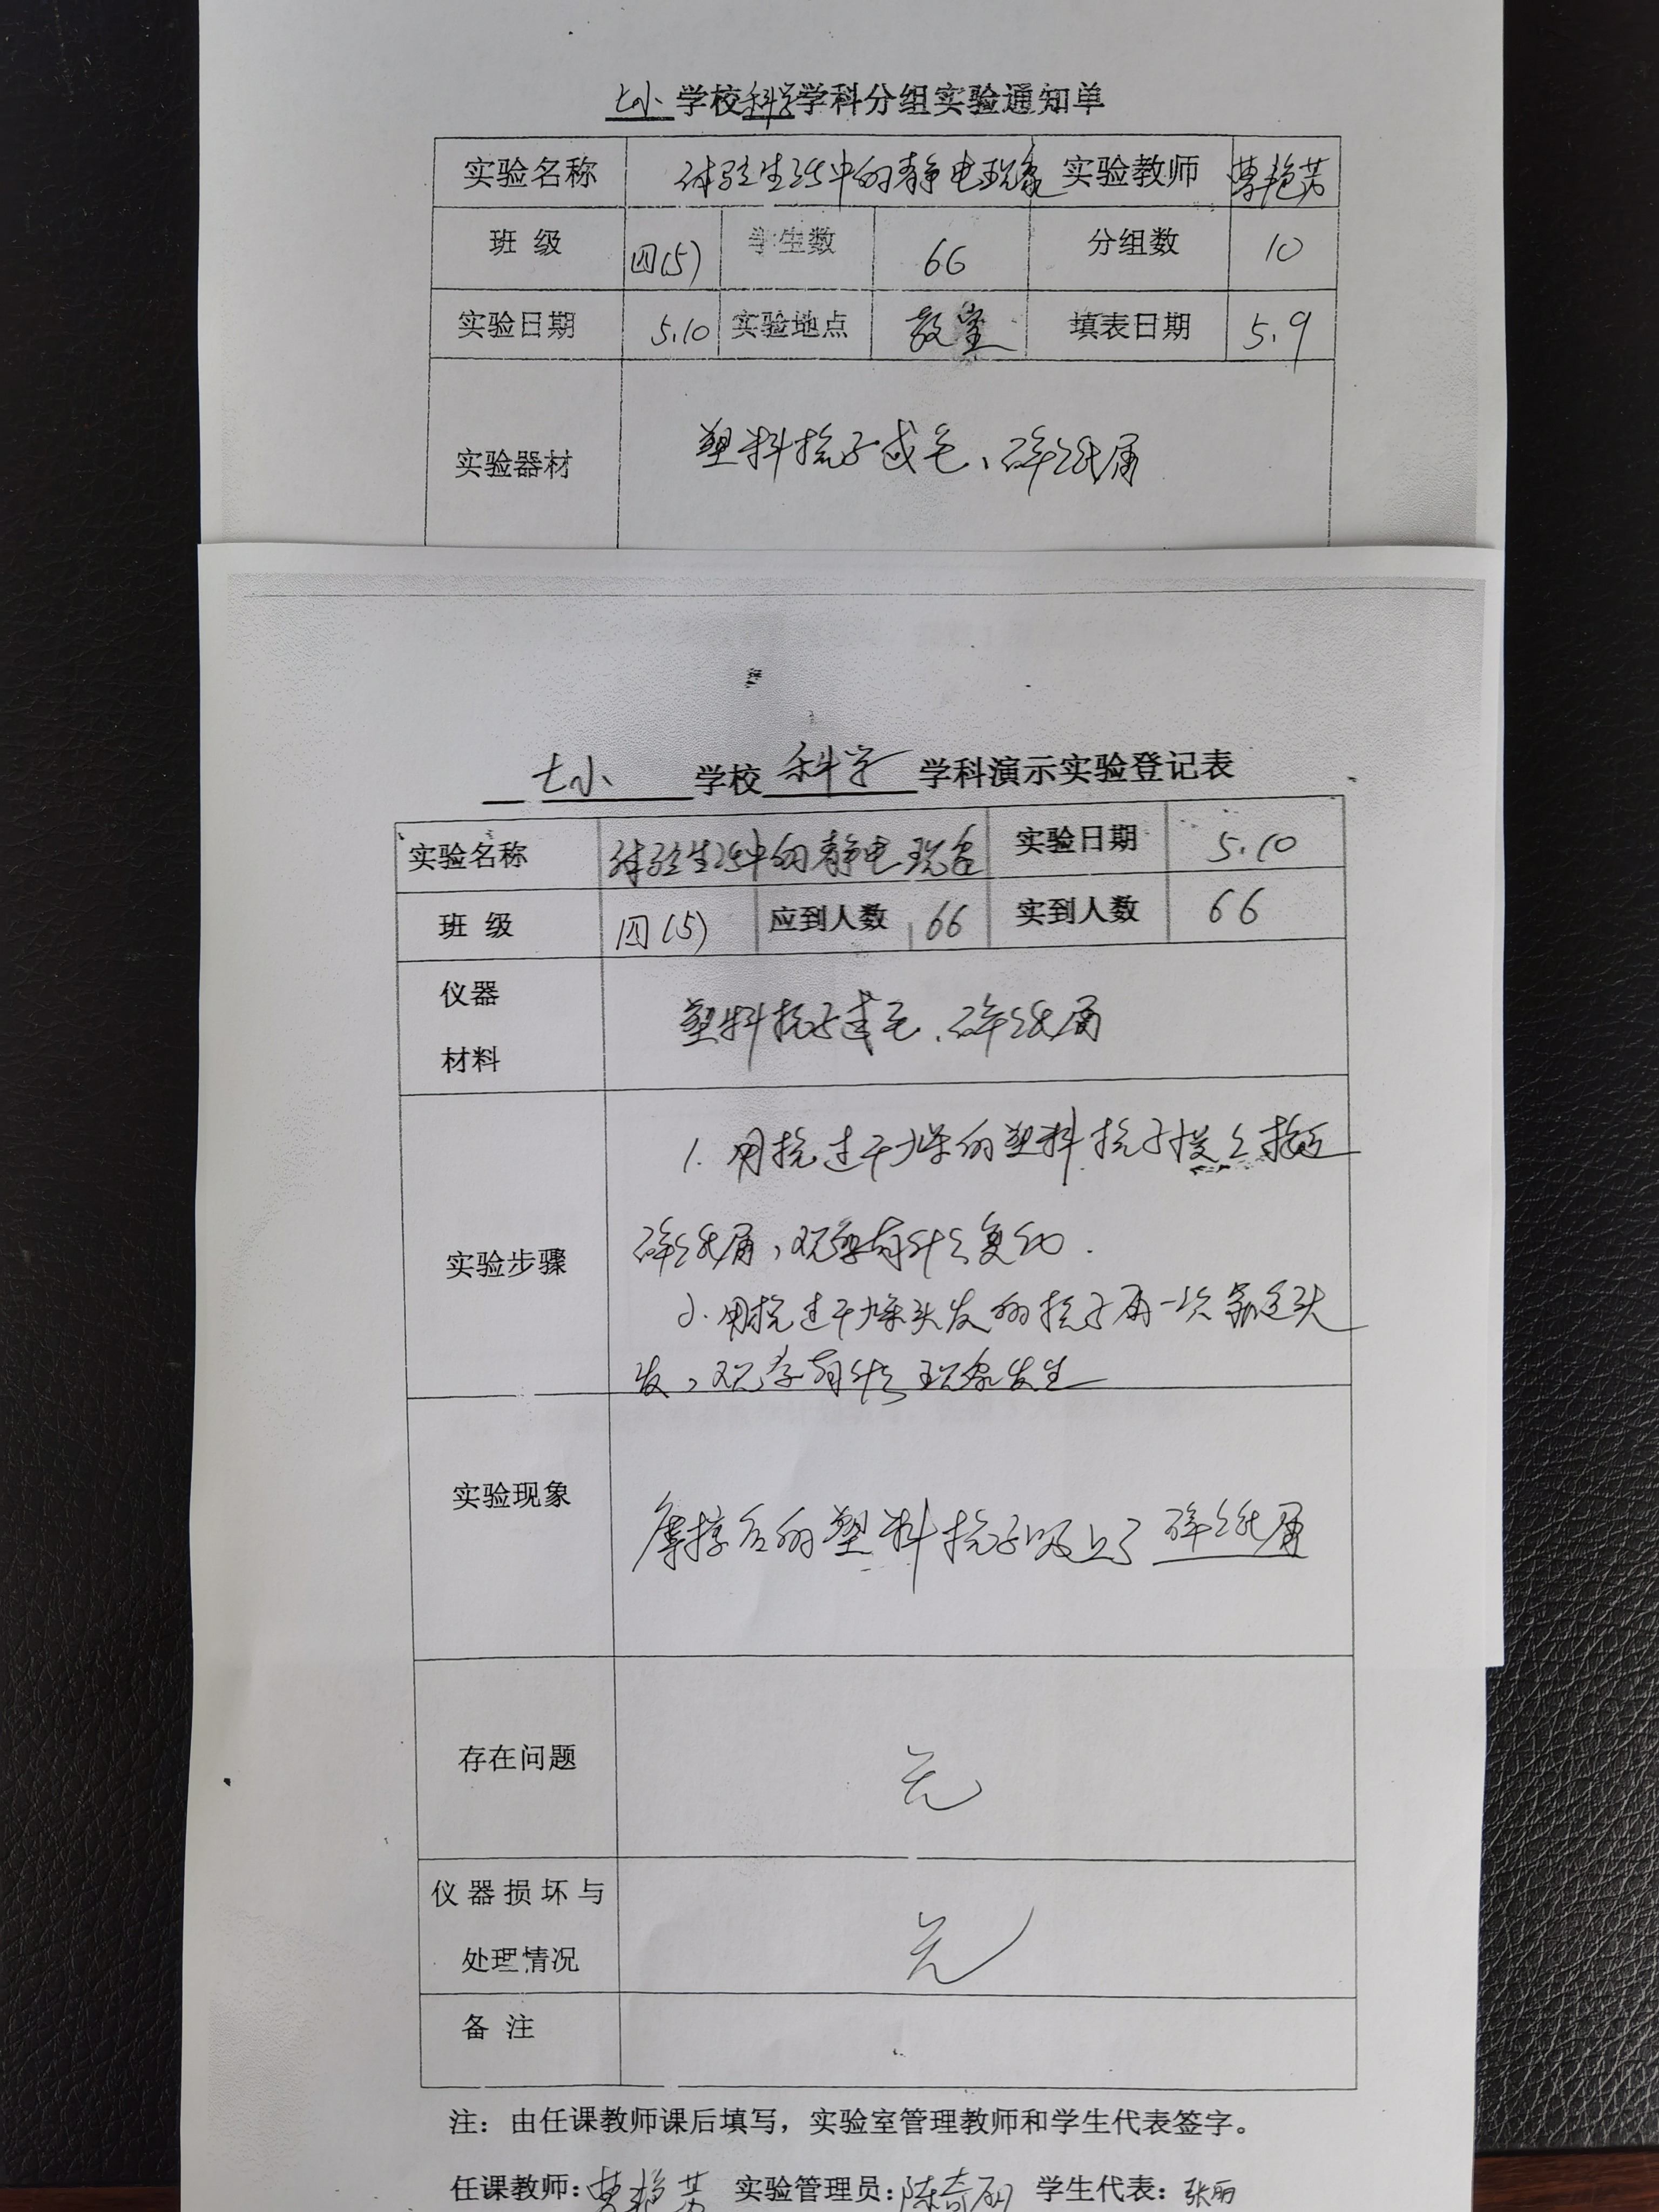 七小学校科学学科分组实验通知单
实验名称 体验生活中的静电现象 实验教师
班 级 四(5) 学生数 66 分组数 10
实验日期 5.10 实验地点 教室 填表日期 5.9
实验器材 塑料梳子 毛、碎纸屑
七小 学校 科学 学科演示实验登记表
实验名称 体验生活中的静电现象 实验日期 5.10
班 级 四(5) 应到人数 66 实到人数 66
仪器
材料 塑料梳子 毛、碎纸屑
1. 用梳过干燥的塑料梳子 接近
碎纸屑,观察有什么变化.
实验步骤
2. 用梳过干燥头发的梳子再一次靠近头
发,观察有什么现象发生
实验现象 摩擦后的塑料梳子吸上了碎纸屑
存在问题 无
仪器损坏与
处理情况 无
备 注
注:由任课教师课后填写,实验室管理教师和学生代表签字。
任课教师: 实验管理员: 学生代表:张丽